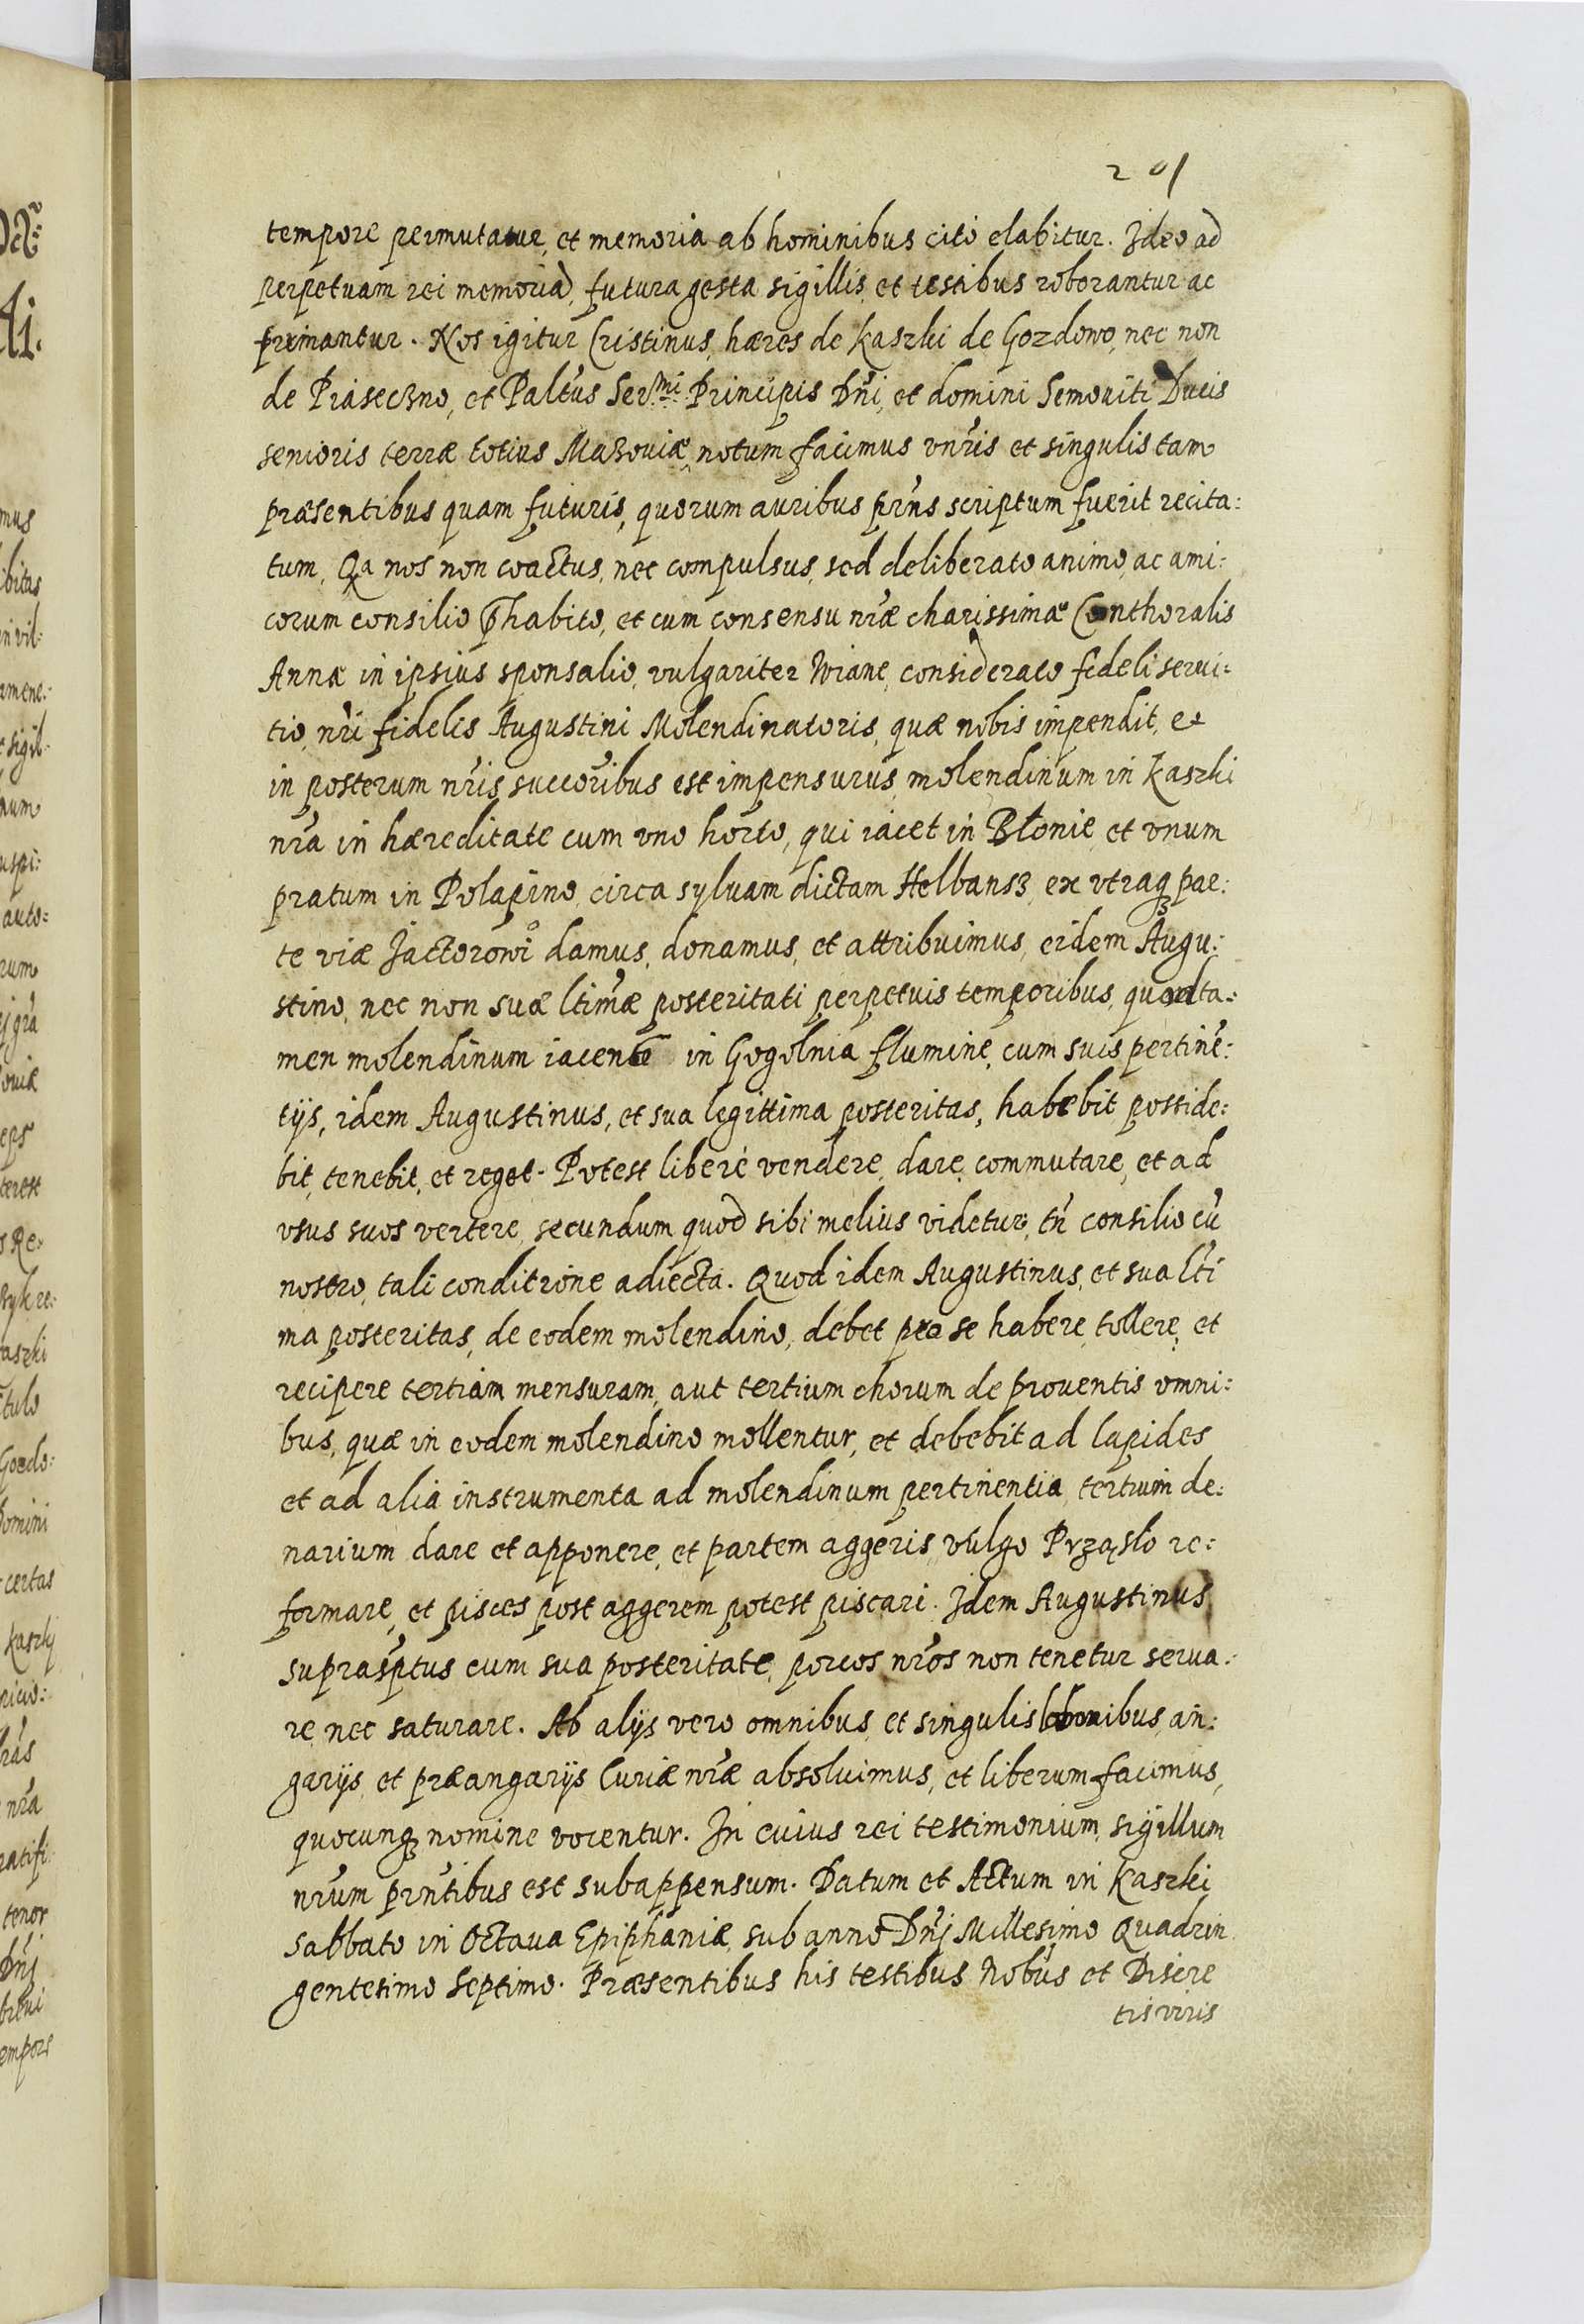 201
tempore permutatur, et memoria ab hominibus cito elabitur. Ideo ad
perpetuam rei memoriā, futura gesta sigillis, et testibus roborantur ac
firmantur. Nos igitur Cristinus, hæres de Kaszki de Gozdowo, nec non
de Piaseczno, et Paltũs Ser.mi Principis Dñi, et domini Semouiti Ducis
senioris terræ totius Mazouiæ, notum facimus vnĩris et singulis tam
præsentibus quam futuris, quorum auribus prñs scriptum fuerit recita:
tum, Qa nos non coactus, nec compulsus, sed deliberato animo, ac ami:
corum consilio ꝓhabito, et cum consensu nr̃æ charissimæ Conthoralis
Annæ in ipsius sponsalio, vulgariter Wiane, considerato fideli serui:
tio, nr̃i fidelis Augustini Molendinatoris, quæ nobis impendit, et
in posterum nr̃is succor̃ibus est impensurus, molendinum in Kaszki
nr̃a in hæreditate cum vno horto, qui iacet in Błonie, et vnum
pratum in Polapino, circa syluam dictam Helbansz, ex vtraqꝫ par:
te viæ Jactorowi damus, donamus, et attribuimus, eidem Augu:
stino, nec non suæ ltim̃æ posteritati perpetuis temporibus, quod ta:
men molendinum iacens in Gogolnia flumine, cum suis pertinẽ:
tijs, idem Augustinus, et sua legittima posteritas, habebit posside:
bit, tenebit, et reget. Potest liberè vendere, dare, commutare, et ad
vsus suos vertere, secundum quod sibi melius videtur, tñ consilio cũ
nostro, tali conditione adiecta. Quod idem Augustinus, et sua lt̃i
ma posteritas, de eodem molendino, debet pro se habere, tollere, et
recipere tertiam mensuram, aut tertium chorum de prouentis omni:
bus, quæ in eodem molendino mollentur, et debebit ad lapides
et ad alia instrumenta ad molendinum pertinentia, tertium de:
narium dare et apponere, et partem aggeris, vulgo Prząslo re:
formare, et pisces post aggerem potest piscari. Idem Augustinus
suprasp̃tus cum sua posteritate, porcos nr̃os non tenetur serua:
re, nec saturare. Ab alijs vero omnibus, et singulis laboribus, an:
garijs, et præangarijs Curiæ nr̃æ absoluimus, et liberum facimus,
quocunqꝫ nomine vocentur. In cuius rei testimonium, sigillum
nr̃um prñtibus est subappensum. Datum et Actum in Kaszki
Sabbato in Octaua Epiphaniæ, sub anno Dñj Millesimo Quadrin
gentesimo Septimo. Præsentibus his testibus Nobũs et Discre
tis viris